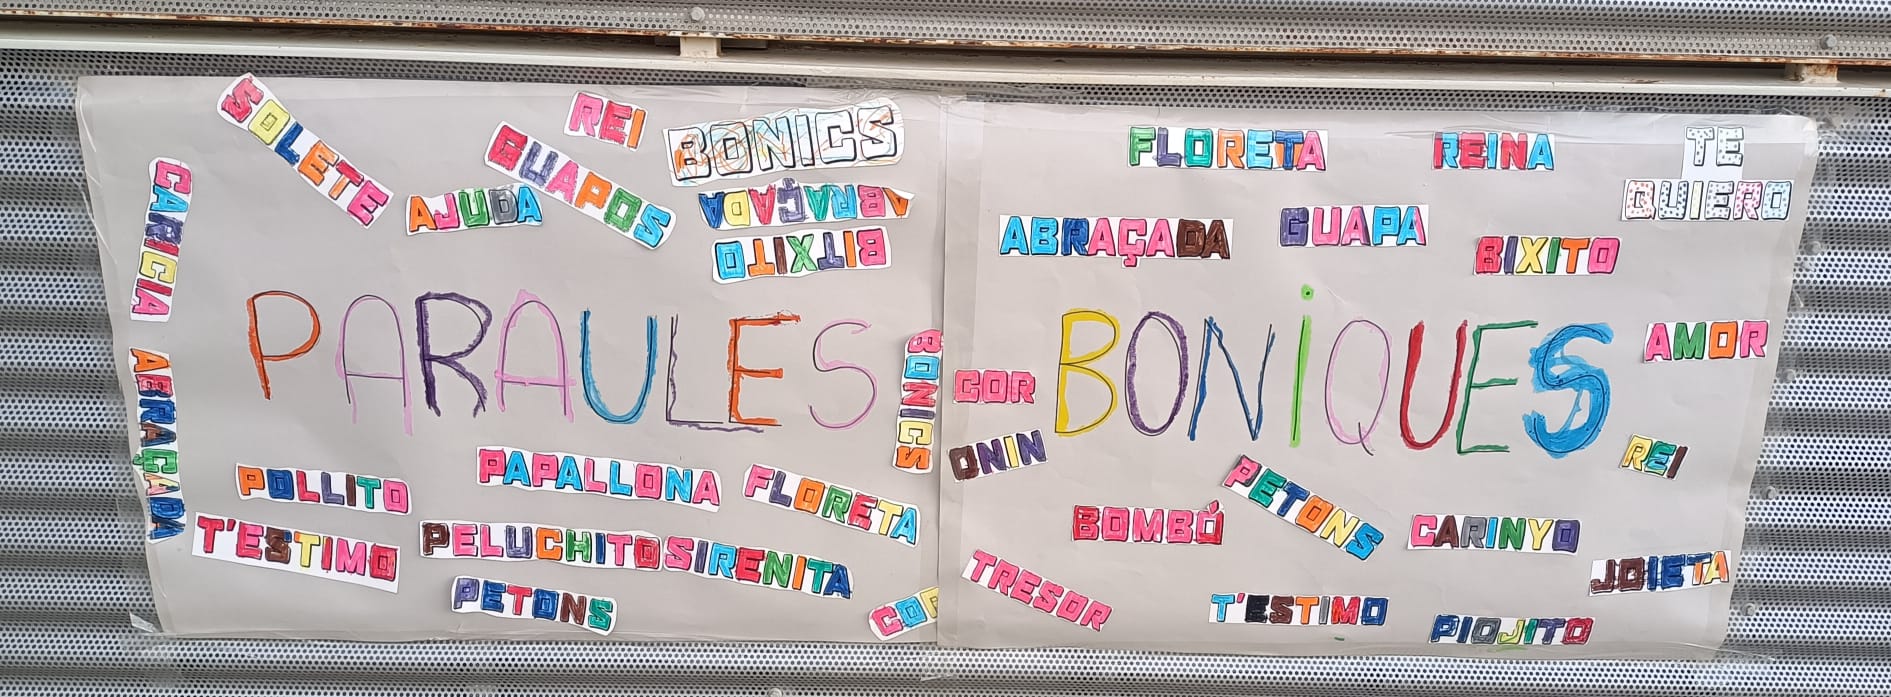 SOLETE
REI
GUAPOS
BONICS
AJUDA
ABRAÇADA
BITXITO
CARICIA
ABRAÇADA
PARAULES
BONICS
POLLITO
PAPALLONA
FLORETA
T'ESTIMO
PELUCHITO
SIRENITA
PETONS
COR
FLORETA
REINA
TE
QUIERO
ABRAÇADA
GUAPA
BIXITO
BONiQUES
AMOR
COR
ONIN
REI
PETONS
BOMBÓ
CARINYO
TRESOR
JOIETA
T'ESTIMO
PIOJITO